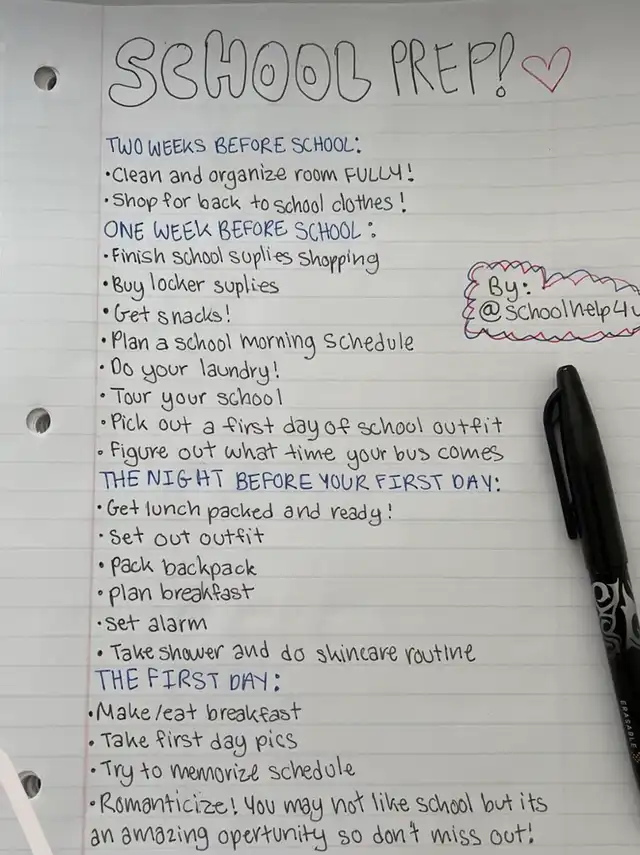 SCHOOL PREP!
TWO WEEKS BEFORE SCHOOL:
• Clean and organize room FULLY!
• Shop for back to school clothes!
ONE WEEK BEFORE SCHOOL:
• Finish school suplies shopping
• Buy locker suplies
• Get snacks!
• Plan a school morning schedule
• Do your laundry!
• Tour your school
• Pick out a first day of school outfit
• Figure out what time your bus comes
By:
@schoolhelp4u
THE NIGHT BEFORE YOUR FIRST DAY:
• Get lunch packed and ready!
• Set out outfit
• Pack backpack
• plan breakfast
• Set alarm
• Take shower and do skincare routine
THE FIRST DAY:
• Make/eat breakfast
• Take first day pics
• Try to memorize schedule
• Romanticize! You may not like school but its
an amazing opertunity so don't miss out!
ERASABLE